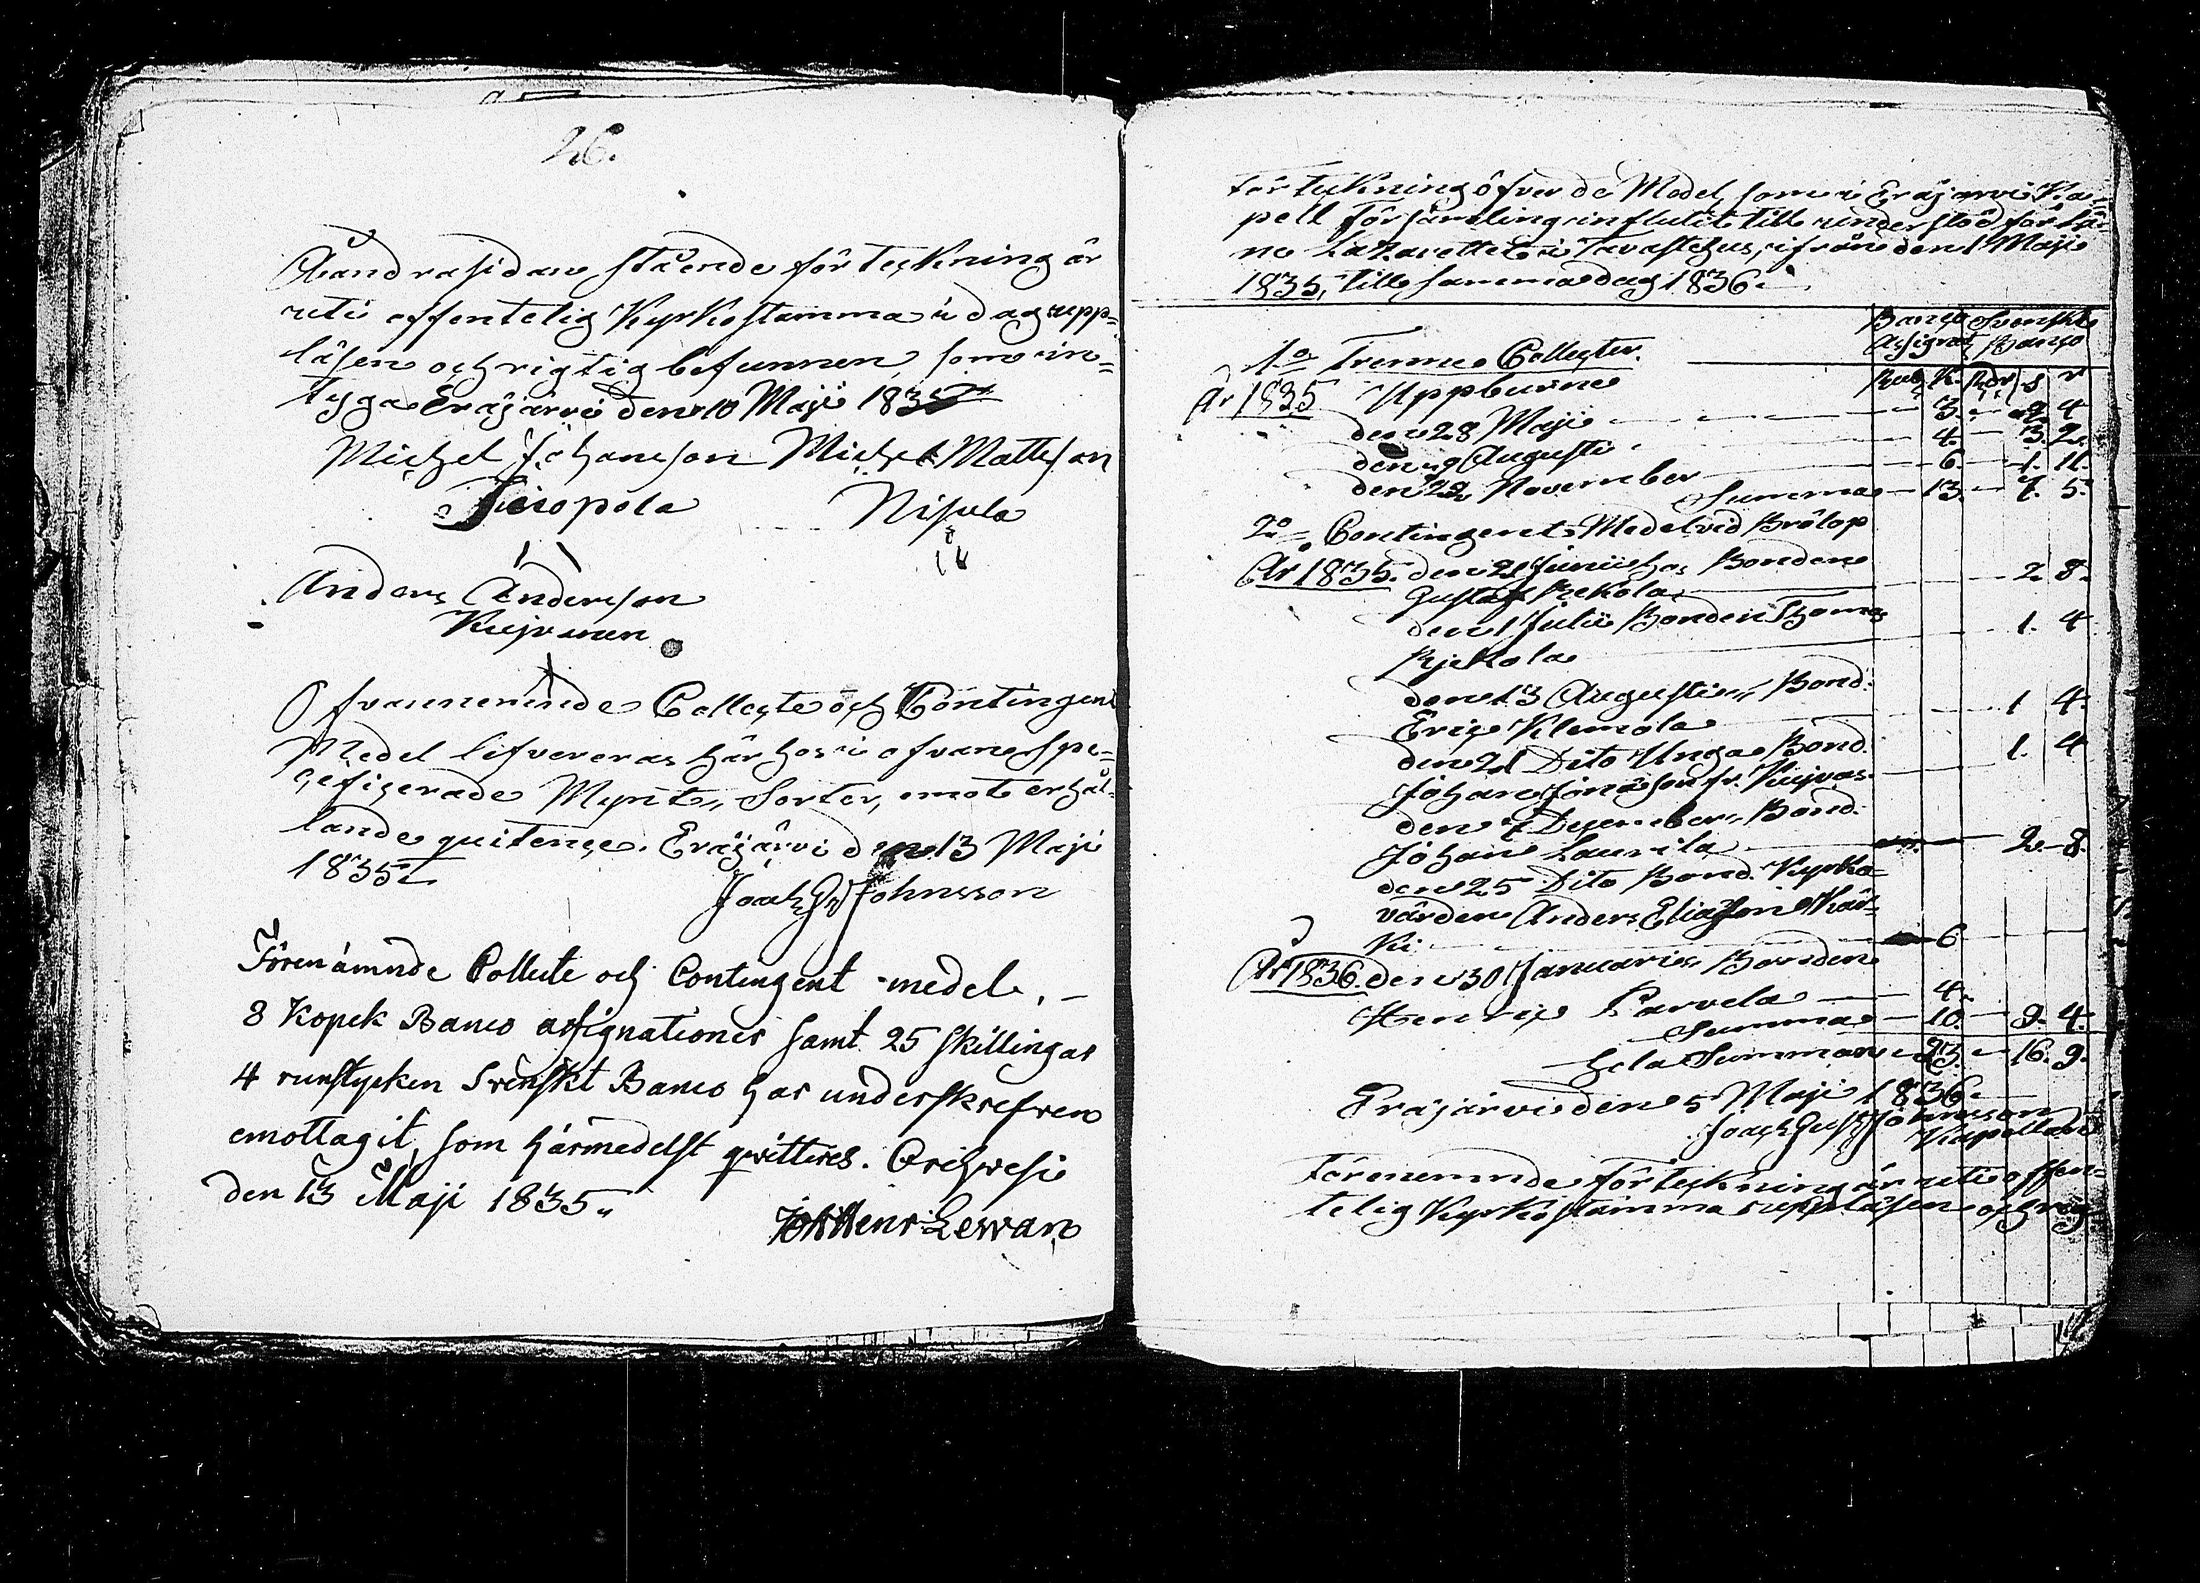 26.
Å andra sidan stående förteckning är
uti offentelig Kyrkostämma i dag upp=
läsen och rigtig befunnen, som in=
tyga Eräjärvi den 10 Maji 1835
Michel Johansson Michel Mattsson
Tiiopola Nisula
Anders Andersson
Kujvanen
Ofvannemnde Collecte och Contingent
Medel lifvereras härhos i ofvanspe=
cificerade Mynt Sorter, emot erhål=
lande quitence. Eräjärvi den 13 Maji
1835
Joach G Johnsson
Förenämnde Collecte och Contingent-medel, –
8 Kopek Banco assignationer samt 25 skillingar
4 runstycken Svenskt Banco har underskrefven
emottagit, som härmedelst qvitteres. Orihvesi
den 13 Maji 1835.
Joh Henr Lewan
Förteckning öfver de Medel, som i Eräjärvi Ka=
pell Församling influtit till understöd för Lä=
ne Lazarettet i Tavastehus, ifrån den 1 Maji
1835, till samma dag 1836.
Banco Svenskt
Assignat. Banco
1o Trenne Collecter. Rub K. Rdr s r
År 1835 Uppburne
den 28 Maji 3. 2 4
den 9 Augusti 4. 3. 2.
den 22 November 6. 1. 11.
Summa 13. 7. 5.
2o Contingent Medel vid Brölop
År 1835. den 21 Junii hos Bonden
Gustaf Rekola 2. 8.
den 1 Julii Bonden Thomas
Rjekola 1. 4
den 13 Augusti Bond.
Eric Klemola 1 4.
den 21 Dito Unga Bond.
Johan Jonasson fr. Kujvas 1. 4
den 7 December Bond.
Johan Laurila 2. 8.
den 25 Dito Bond. Kyrko=
värden Anders Eliasson
ki 6
År 1836. den 30 Januari Bonden
Henric Parvela 4.
Summa 10. 9. 4.
hela Summan 23. 16. 9.
Eräjärvi den 5 Maji 1836.
Joach Gust Johnsson
Kapellan
Förenemnde förteckning är uti offen=
telig Kyrkostämma uppläsen och rig